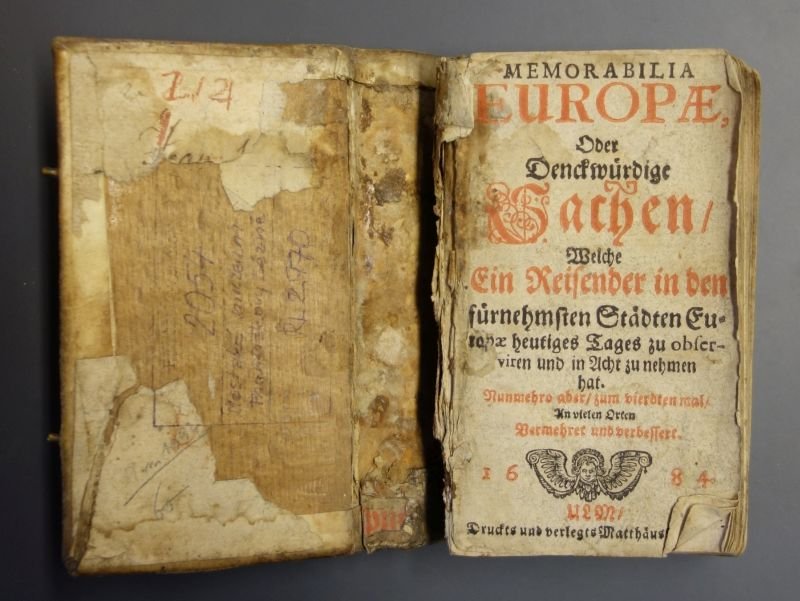 1/4
2054
RL 2970
MEMORABILIA
EUROPÆ,
Oder
Denckwürdige
Sachen/
Welche
Ein Reisender in den
fürnehmsten Städten Eu-
ropæ heutiges Tages zu obser-
viren und in Acht zu nehmen
hat.
Nunmehro aber/ zum vierdten mal/
An vielen Orten
Vermehret und verbessert.
1684.
ULM/
Druckts und verlegts Matthäus